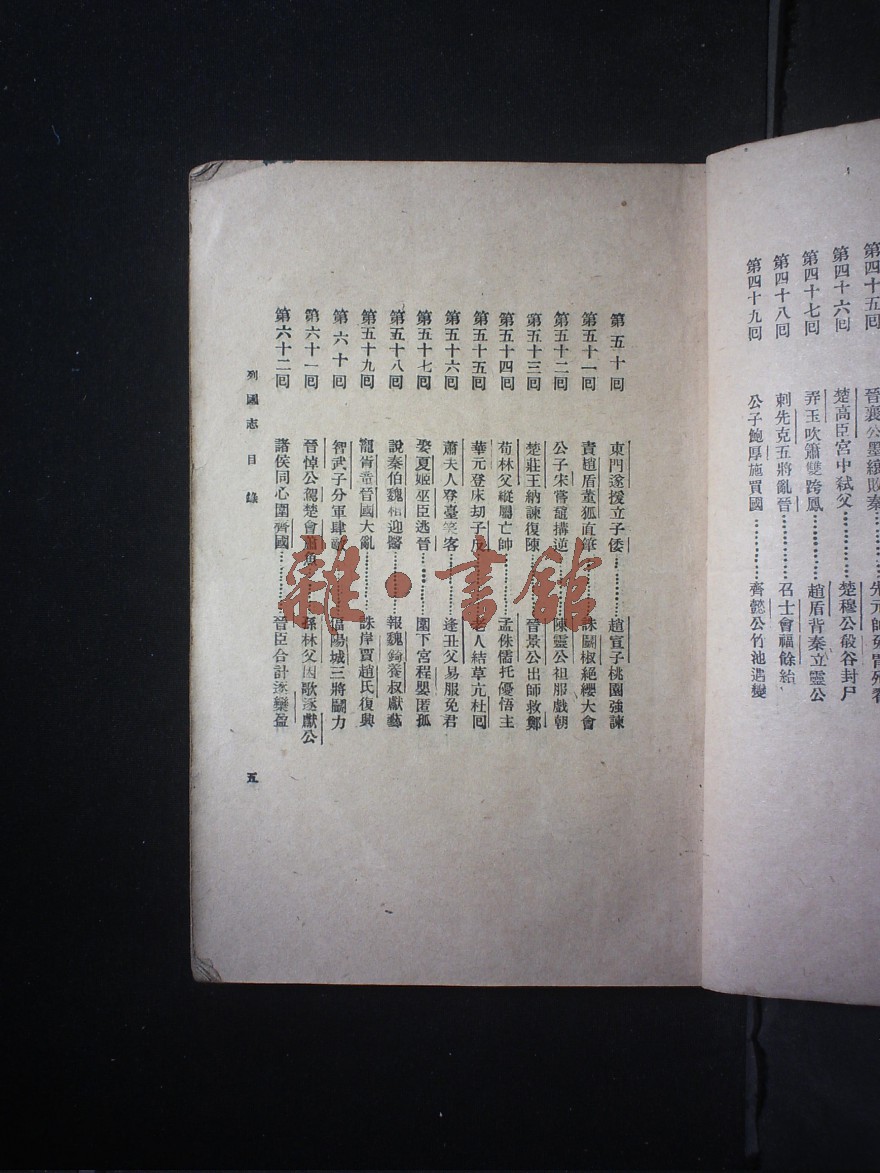 第四十五回 晉襄公墨縗敗秦……先元帥免冑殉翟
第四十六回 楚商臣宮中弒父……楚穆公殽谷封尸
第四十七回 弄玉吹簫雙跨鳳……趙盾背秦立靈公
第四十八回 刺先克五將亂晉……召士會福餘紿
第四十九回 公子鮑厚施買國……齊懿公竹池遇變
第五十回 東門遂援立子倭……趙宣子桃園強諫
第五十一回 責趙盾董狐直筆……誅鬭椒絕纓大會
第五十二回 公子宋嘗黿搆逆……陳靈公袒服戲朝
第五十三回 楚莊王納諫復陳……晉景公出師救鄭
第五十四回 荀林父縱屬亡師……孟侏儒托優悟主
第五十五回 華元登床劫子反……老人結草亢杜回
第五十六回 蕭夫人登臺笑客……逢丑父易服免君
第五十七回 娶夏姬巫臣逃晉……圍下宮程嬰匿孤
第五十八回 說秦伯魏相迎醫……報魏錡養叔獻藝
第五十九回 寵胥童晉國大亂……誅岸賈趙氏復興
第六十回 智武子分軍肆敵……偪陽城三將鬭力
第六十一回 晉悼公駕楚會蕭魚……孫林父因歌逐獻公
第六十二回 諸侯同心圍齊國……晉臣合計逐欒盈
列國志 目錄
五
雜·書館